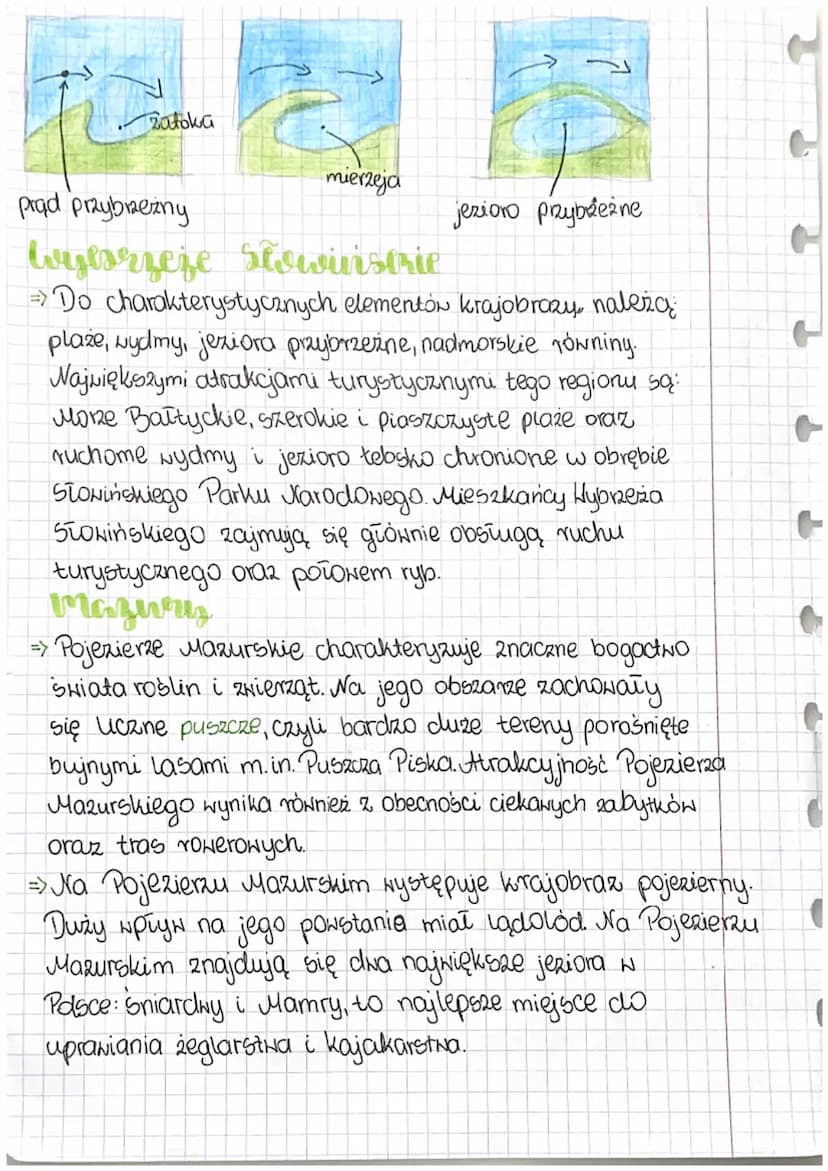 zatoka
mierzeja
prąd przybrzeżny
jezioro przybrzeżne
Wybrzeże Słowińskie
=> Do charakterystycznych elementów krajobrazu, należą:
plaże, wydmy, jeziora przybrzeżne, nadmorskie równiny.
Największymi atrakcjami turystycznymi tego regionu są:
Morze Bałtyckie, szerokie i piaszczyste plaże oraz
ruchome wydmy i jezioro Łebsko chronione w obrębie
Słowińskiego Parku Narodowego. Mieszkańcy Wybrzeża
Słowińskiego zajmują się głównie obsługą ruchu
turystycznego oraz połowem ryb.
Mazury
=> Pojezierze Mazurskie charakteryzuje znaczne bogactwo
świata roślin i zwierząt. Na jego obszarze zachowały
się liczne puszcze, czyli bardzo duże tereny porośnięte
bujnymi lasami m.in. Puszcza Piska. Atrakcyjność Pojezierza
Mazurskiego wynika również z obecności ciekawych zabytków
oraz tras rowerowych.
=> Na Pojezierzu Mazurskim występuje krajobraz pojezierny.
Duży wpływ na jego powstanie miał lądolód. Na Pojezierzu
Mazurskim znajdują się dwa największe jeziora w
Polsce: Śniardwy i Mamry, to najlepsze miejsce do
uprawiania żeglarstwa i kajakarstwa.